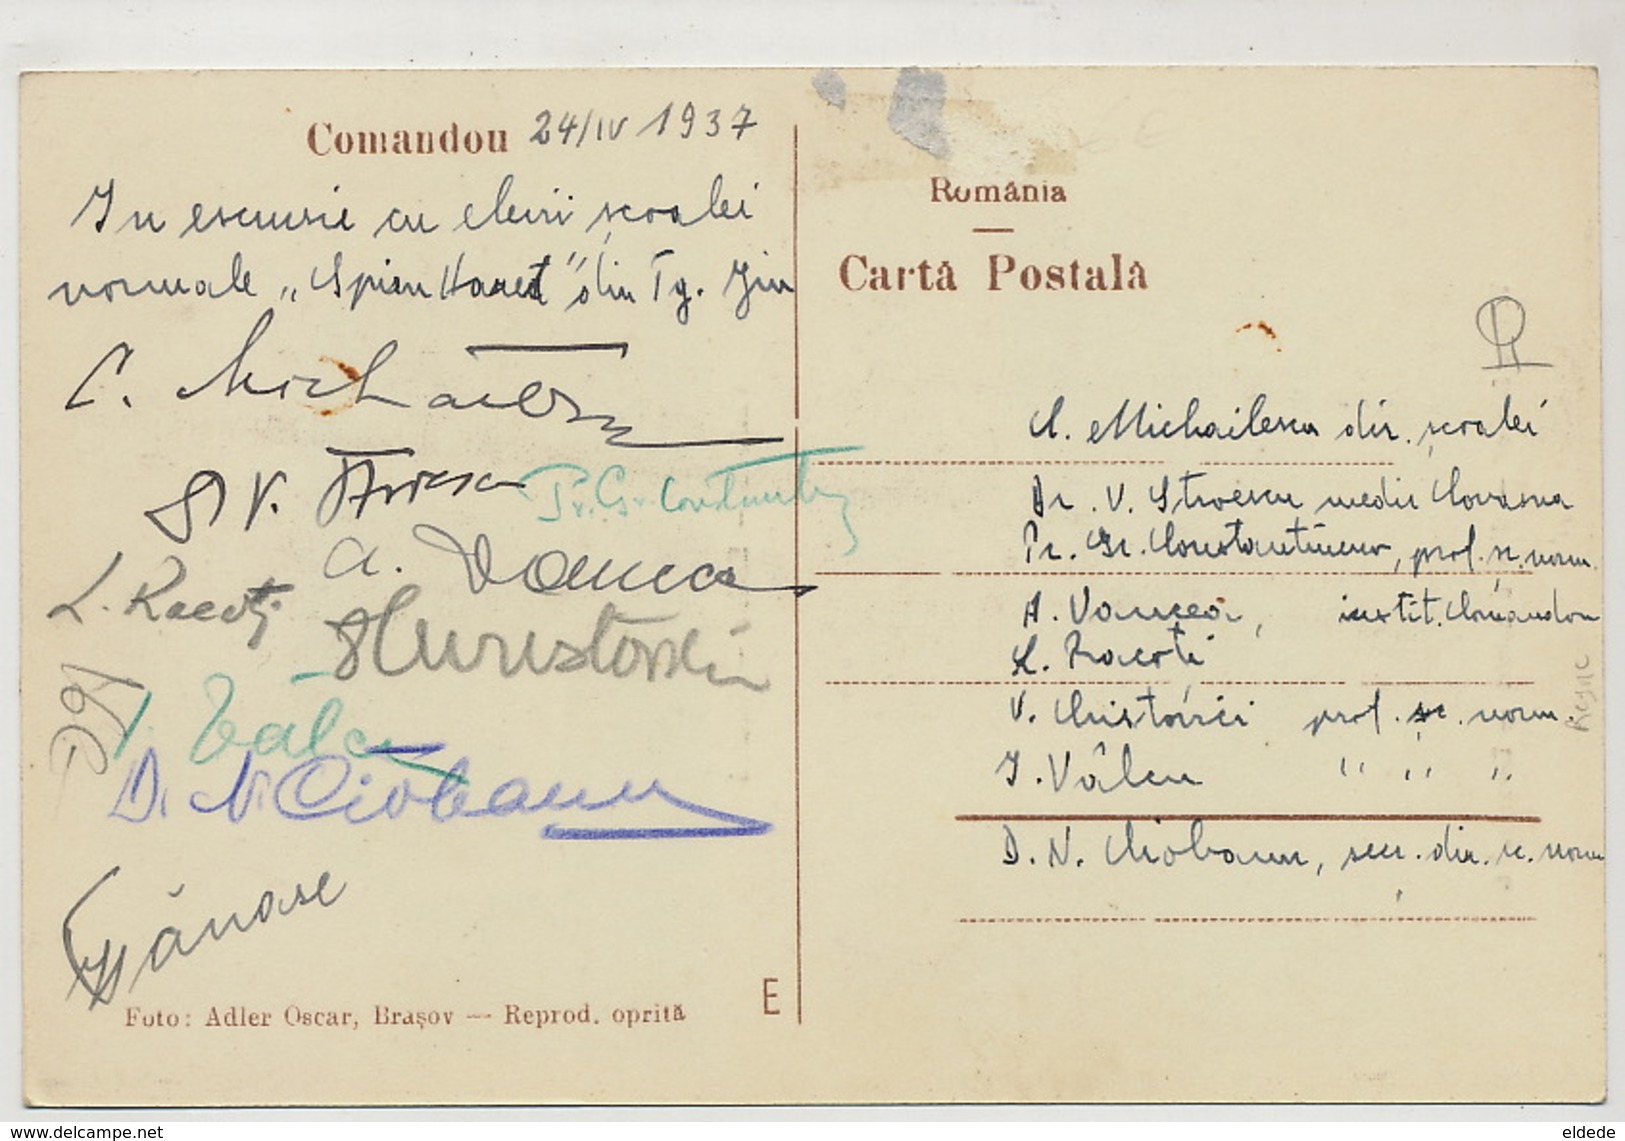 Comandou 24/IV 1937
In escursie cu elevii școalei
normale „Spiru Haret” din Tg. Jiu
C. Michăilescu
Dr V. Stroescu
Pr. Gr. Constantinescu
A. Vancea
L. Racoți
V. Christovici
I. Vâlcu
D. N. Ciobanu
Tănase
Foto: Adler Oscar, Brașov — Reprod. oprită
E
România
Cartă Postală
C. Michailescu dir. școalei
Dr. V. Stroescu medic Covasna
Pr. Gr. Constantinescu, prof. șc. norm.
A. Vancea, instit. Comandou
L. Racoti
V. Christovici prof. șc. norm.
I. Vâlcu " " "
D. N. Ciobanu, secr. dir. șc. norm
www.delcampe.net
eldede